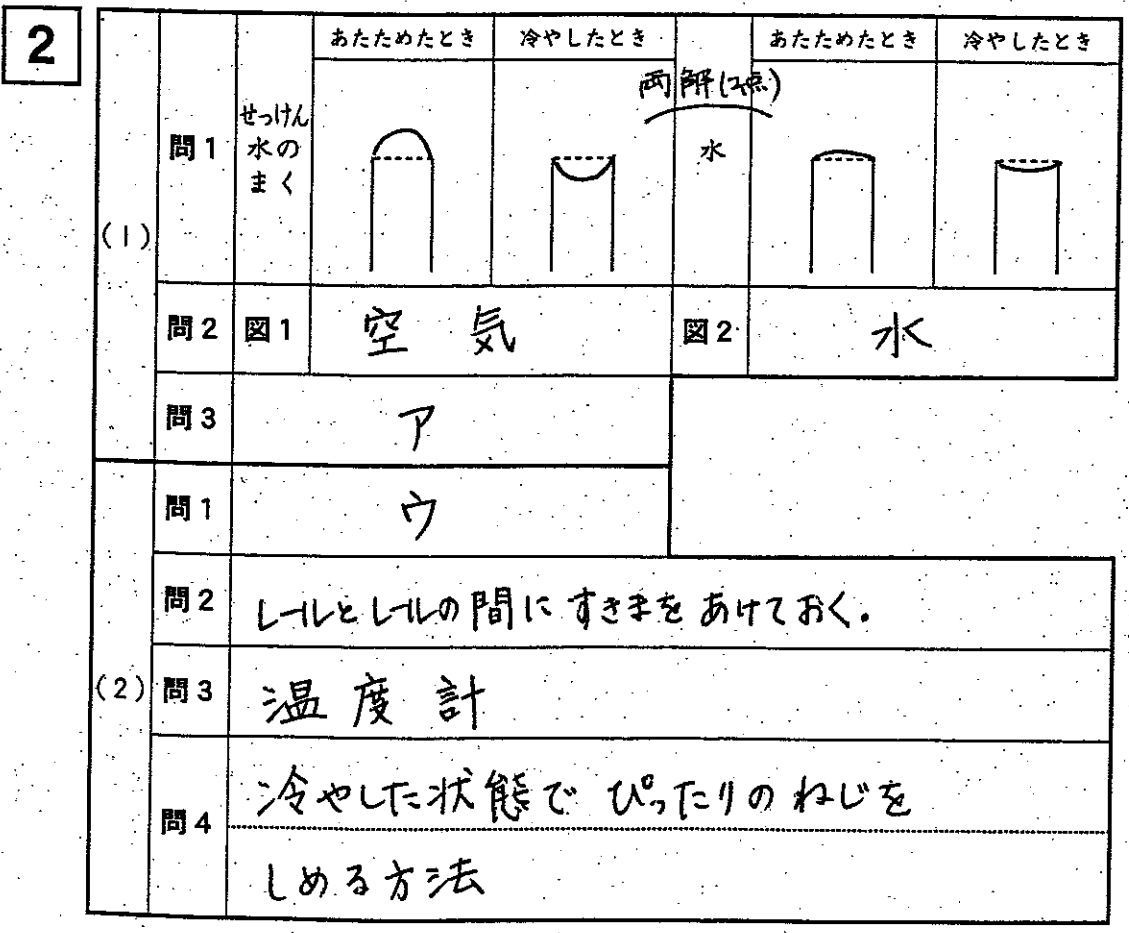 2
あたためたとき 冷やしたとき あたためたとき 冷やしたとき
両解(2点)
(1) 問1 せっけん水のまく 水
問2 図1 空気 図2 水
問3 ア
(2) 問1 ウ
問2 レールとレールの間にすきまをあけておく.
問3 温度計
問4 冷やした状態でぴったりのねじを
しめる方法